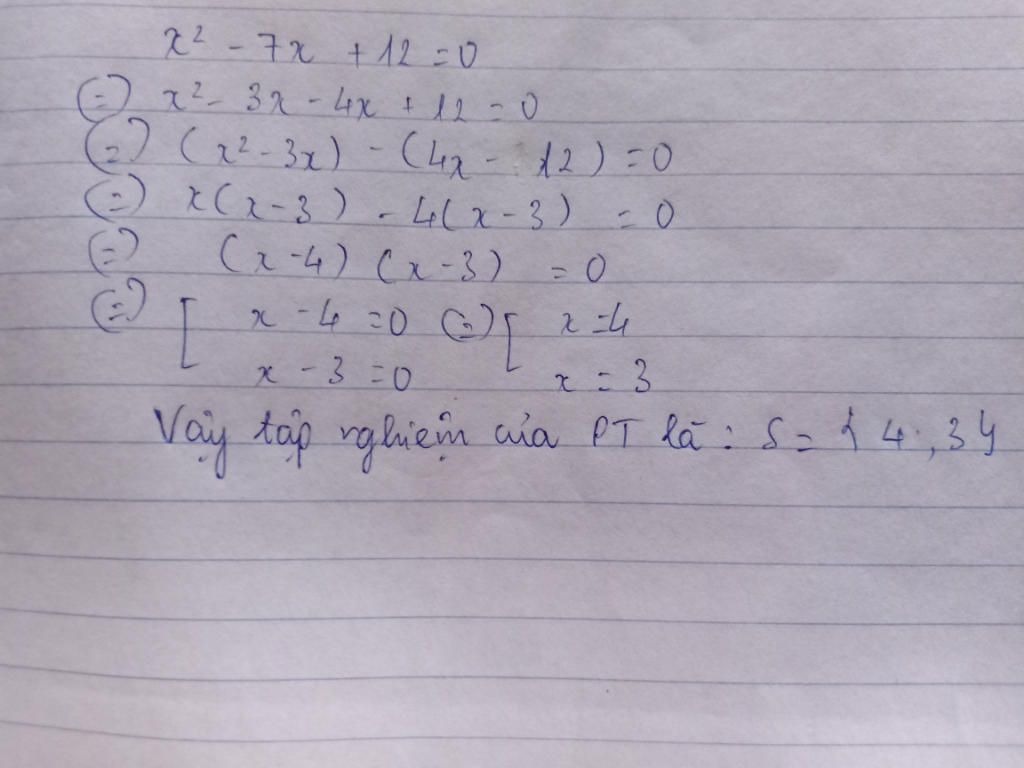 x² - 7x + 12 = 0
(=) x² - 3x - 4x + 12 = 0
(=) (x² - 3x) - (4x - 12) = 0
(=) x(x - 3) - 4(x - 3) = 0
(=) (x - 4) (x - 3) = 0
(=) [ x - 4 = 0 (=) [ x = 4
x - 3 = 0 x = 3
Vậy tập nghiệm của PT là : S = { 4 , 3 }